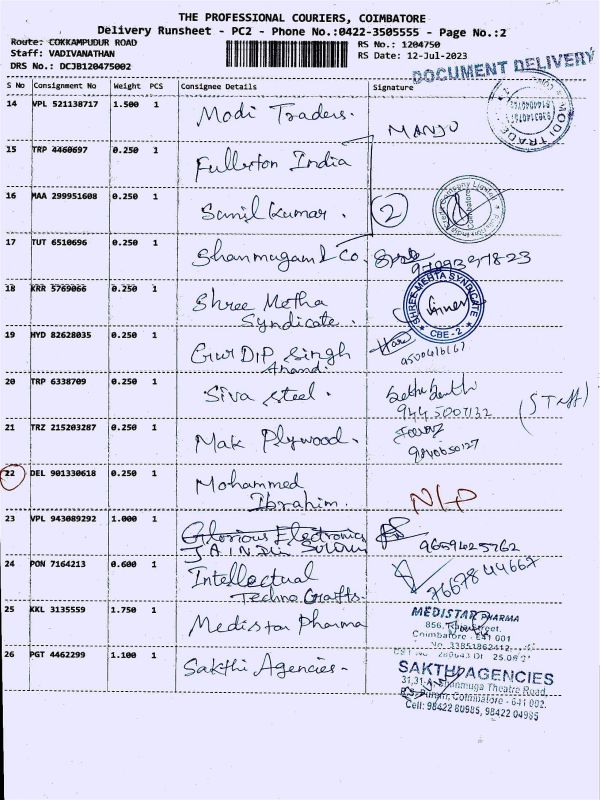 THE PROFESSIONAL COURIERS, COIMBATORE
Delivery Runsheet - PC2 - Phone No.:0422-3505555 - Page No.:2
Route: COKKAMPUDUR ROAD
RS No.: 1204750
Staff: VADIVANATHAN
RS Date: 12-Jul-2023
DRS No.: DCJB120475002
DOCUMENT DELIVERY
S No Consignment No Weight PCS Consignee Details Signature
14 VPL 521138717 1.500 1 Modi Traders. MANJU
15 TRP 4460697 0.250 1 Fullerton India
16 MAA 299951608 0.250 1 Sunil Kumar. 2
17 TUT 6510696 0.250 1 Shanmugam & Co.
18 KRR 5769066 0.250 1 Shree Metha
Syndicate.
SHREE MEHTA SYNDICATE
CBE - 2
19 HYD 82628035 0.250 1 Gur DIP Singh
Anand.
20 TRP 6338709 0.250 1 Siva steel.
9445007132 (Staff)
21 TRZ 215203287 0.250 1 Mak Plywood.
9840650127
22 DEL 901330618 0.250 1 Mohammed
Ibrahim.
23 VPL 943089292 1.000 1 Glorious Electronics
9659425762
24 PON 7164213 0.600 1 Intellectual
Techno Crafts.
7667844667
25 KKL 3135559 1.750 1 Medistar Pharma
MEDISTAR PHARMA
Coimbatore - 641 001
26 PGT 4462299 1.100 1 Sakthi Agencies.
SAKTHI AGENCIES
31,31-A, Shanmuga Theatre Road,
Coimbatore - 641 002.
Cell: 98422 80985, 98422 04985